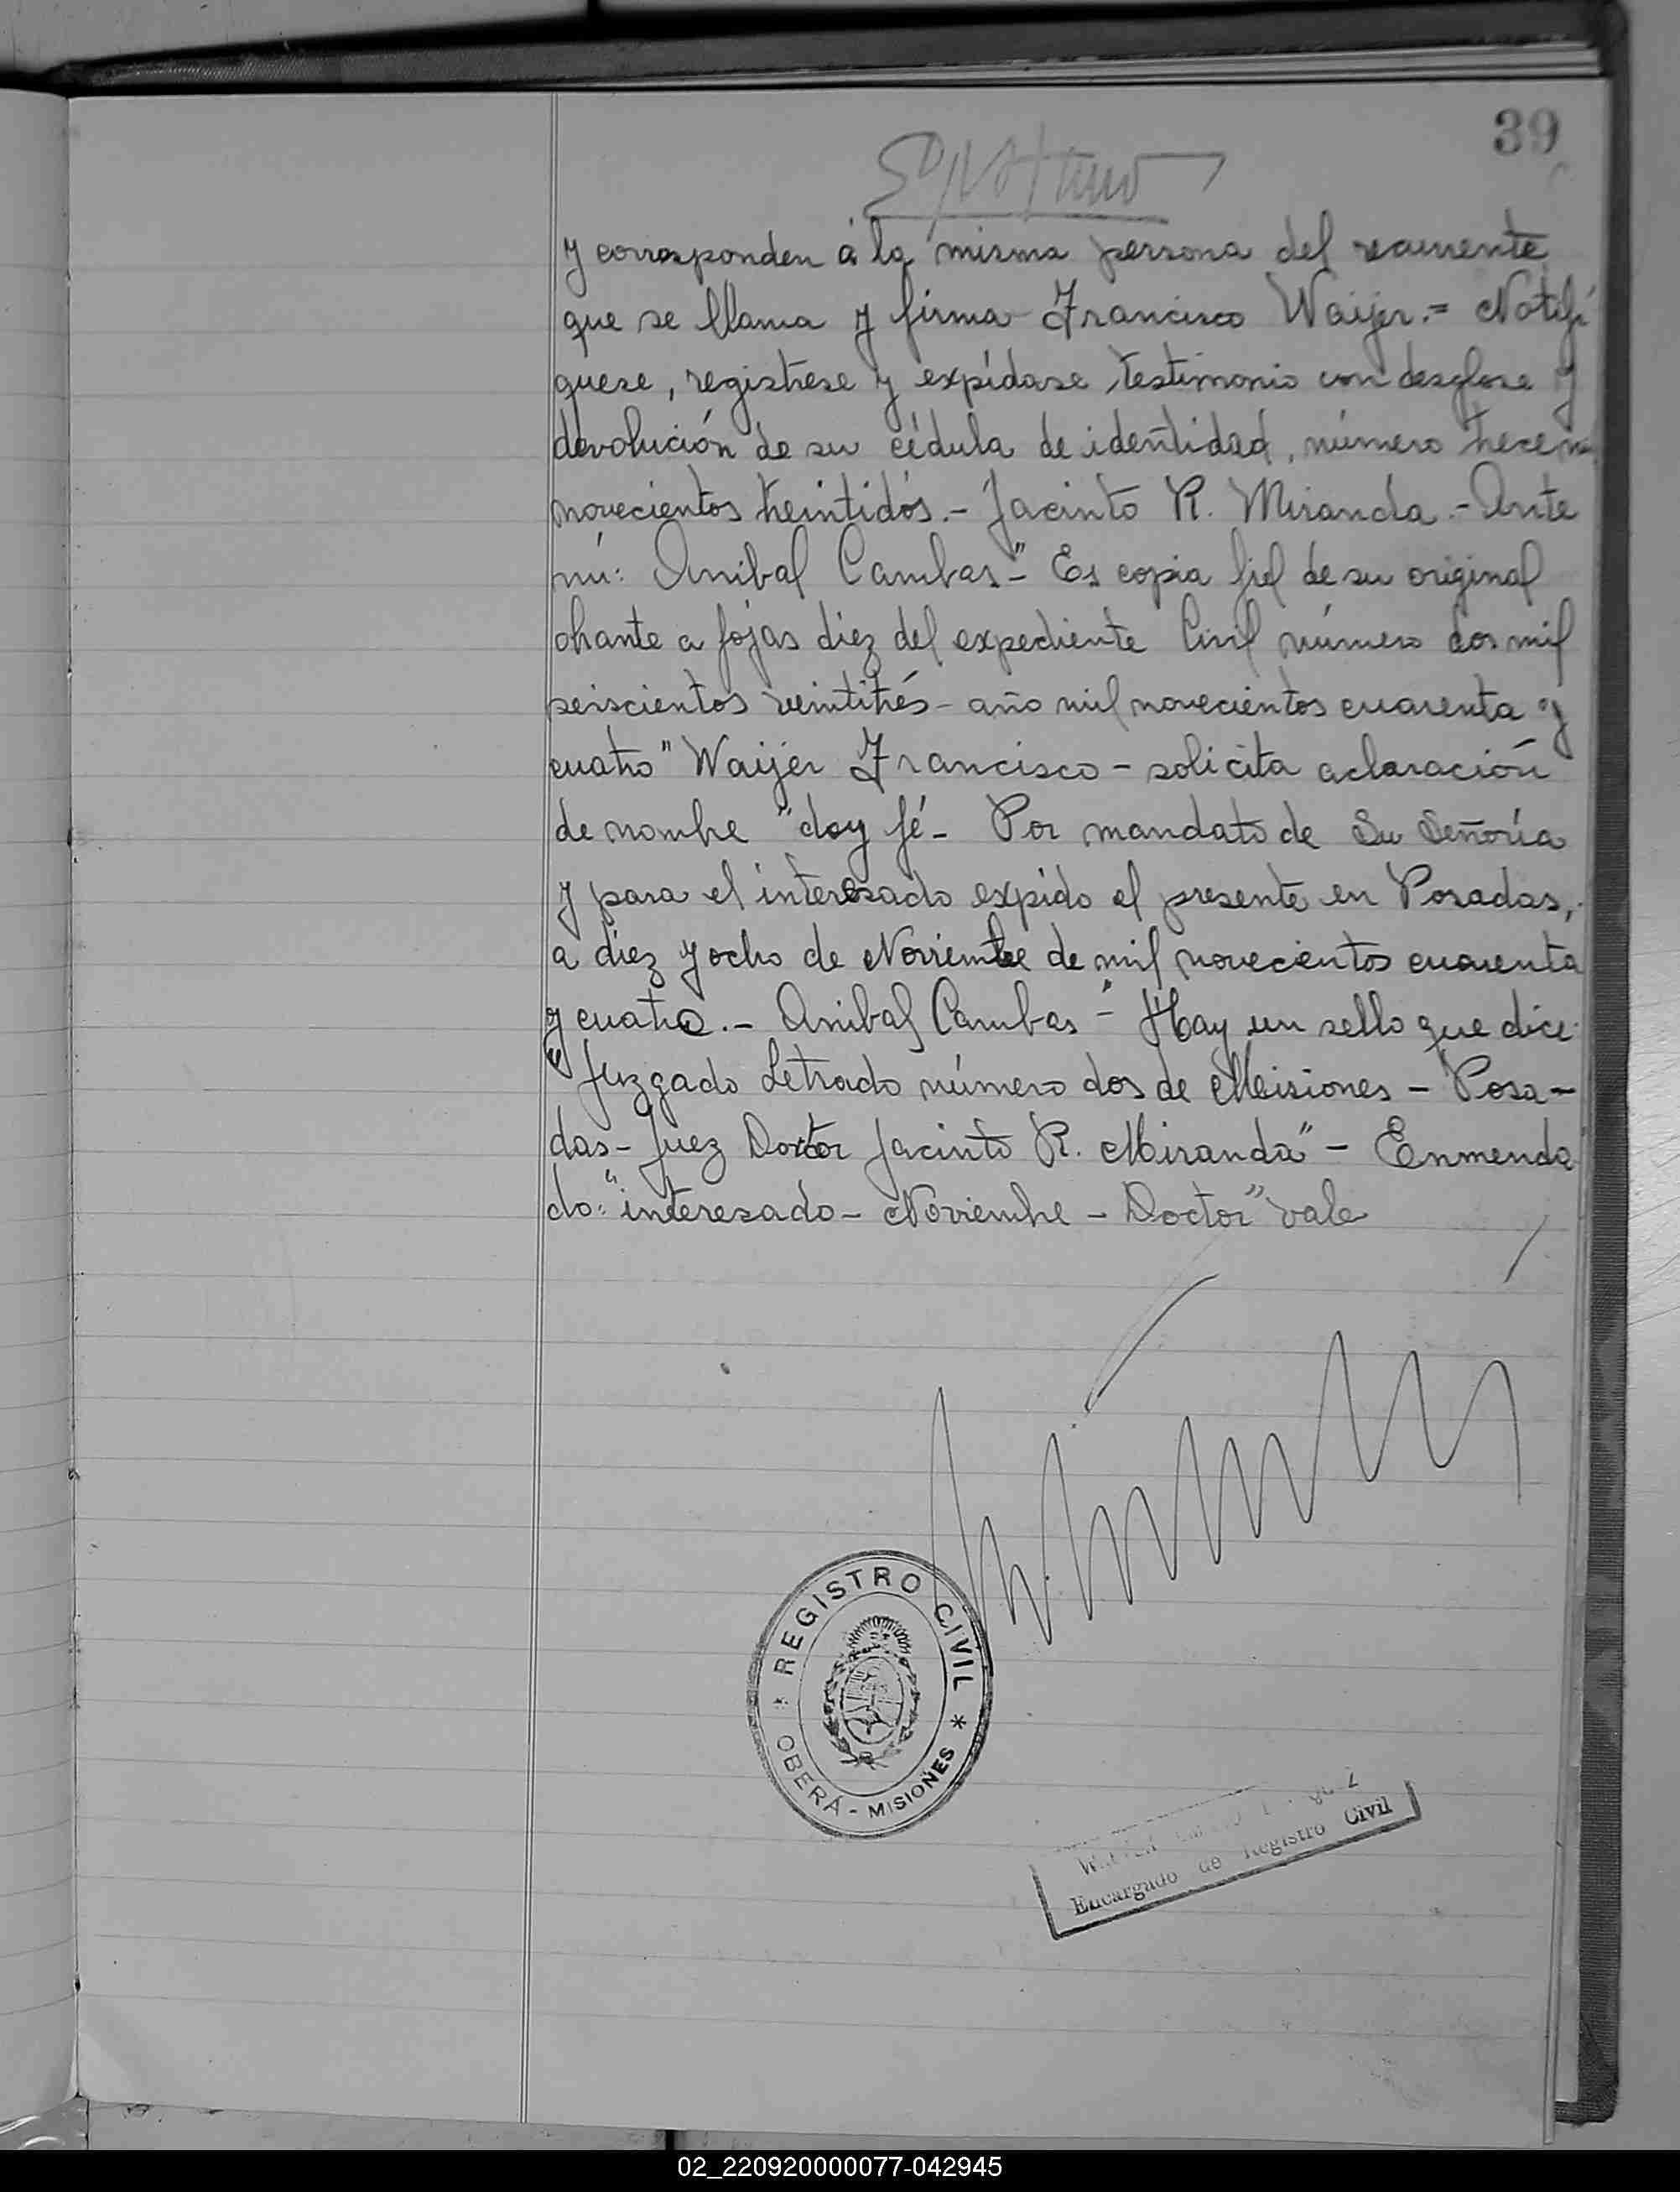 39
y corresponden a la misma persona del recurrente
que se llama y firma Francisco Waijer.= Notifi
quese, registrese y expídase testimonio con desglose y
devolución de su cédula de identidad, número trece mil
novecientos treintidós.- Jacinto R. Miranda.- Ante
mí: Anibal Cambas"- Es copia fiel de su original
obrante a fojas diez del expediente Civil número dos mil
seiscientos veintitrés - año mil novecientos cuarenta y
cuatro "Waijer Francisco - solicita aclaración
de nombre" doy fé - Por mandato de Su Señoría
y para el interesado expido el presente en Posadas,
a diez y ocho de Noviembre de mil novecientos cuarenta
y cuatro.- Anibal Cambas"- Hay un sello que dice:
"Juzgado Letrado número dos de Misiones - Posa-
das - Juez Doctor Jacinto R. Miranda" - Enmenda
do: "interesado - Noviembre - Doctor" vale
REGISTRO CIVIL
OBERÁ - MISIONES
Encargado de Registro Civil
02_220920000077-042945